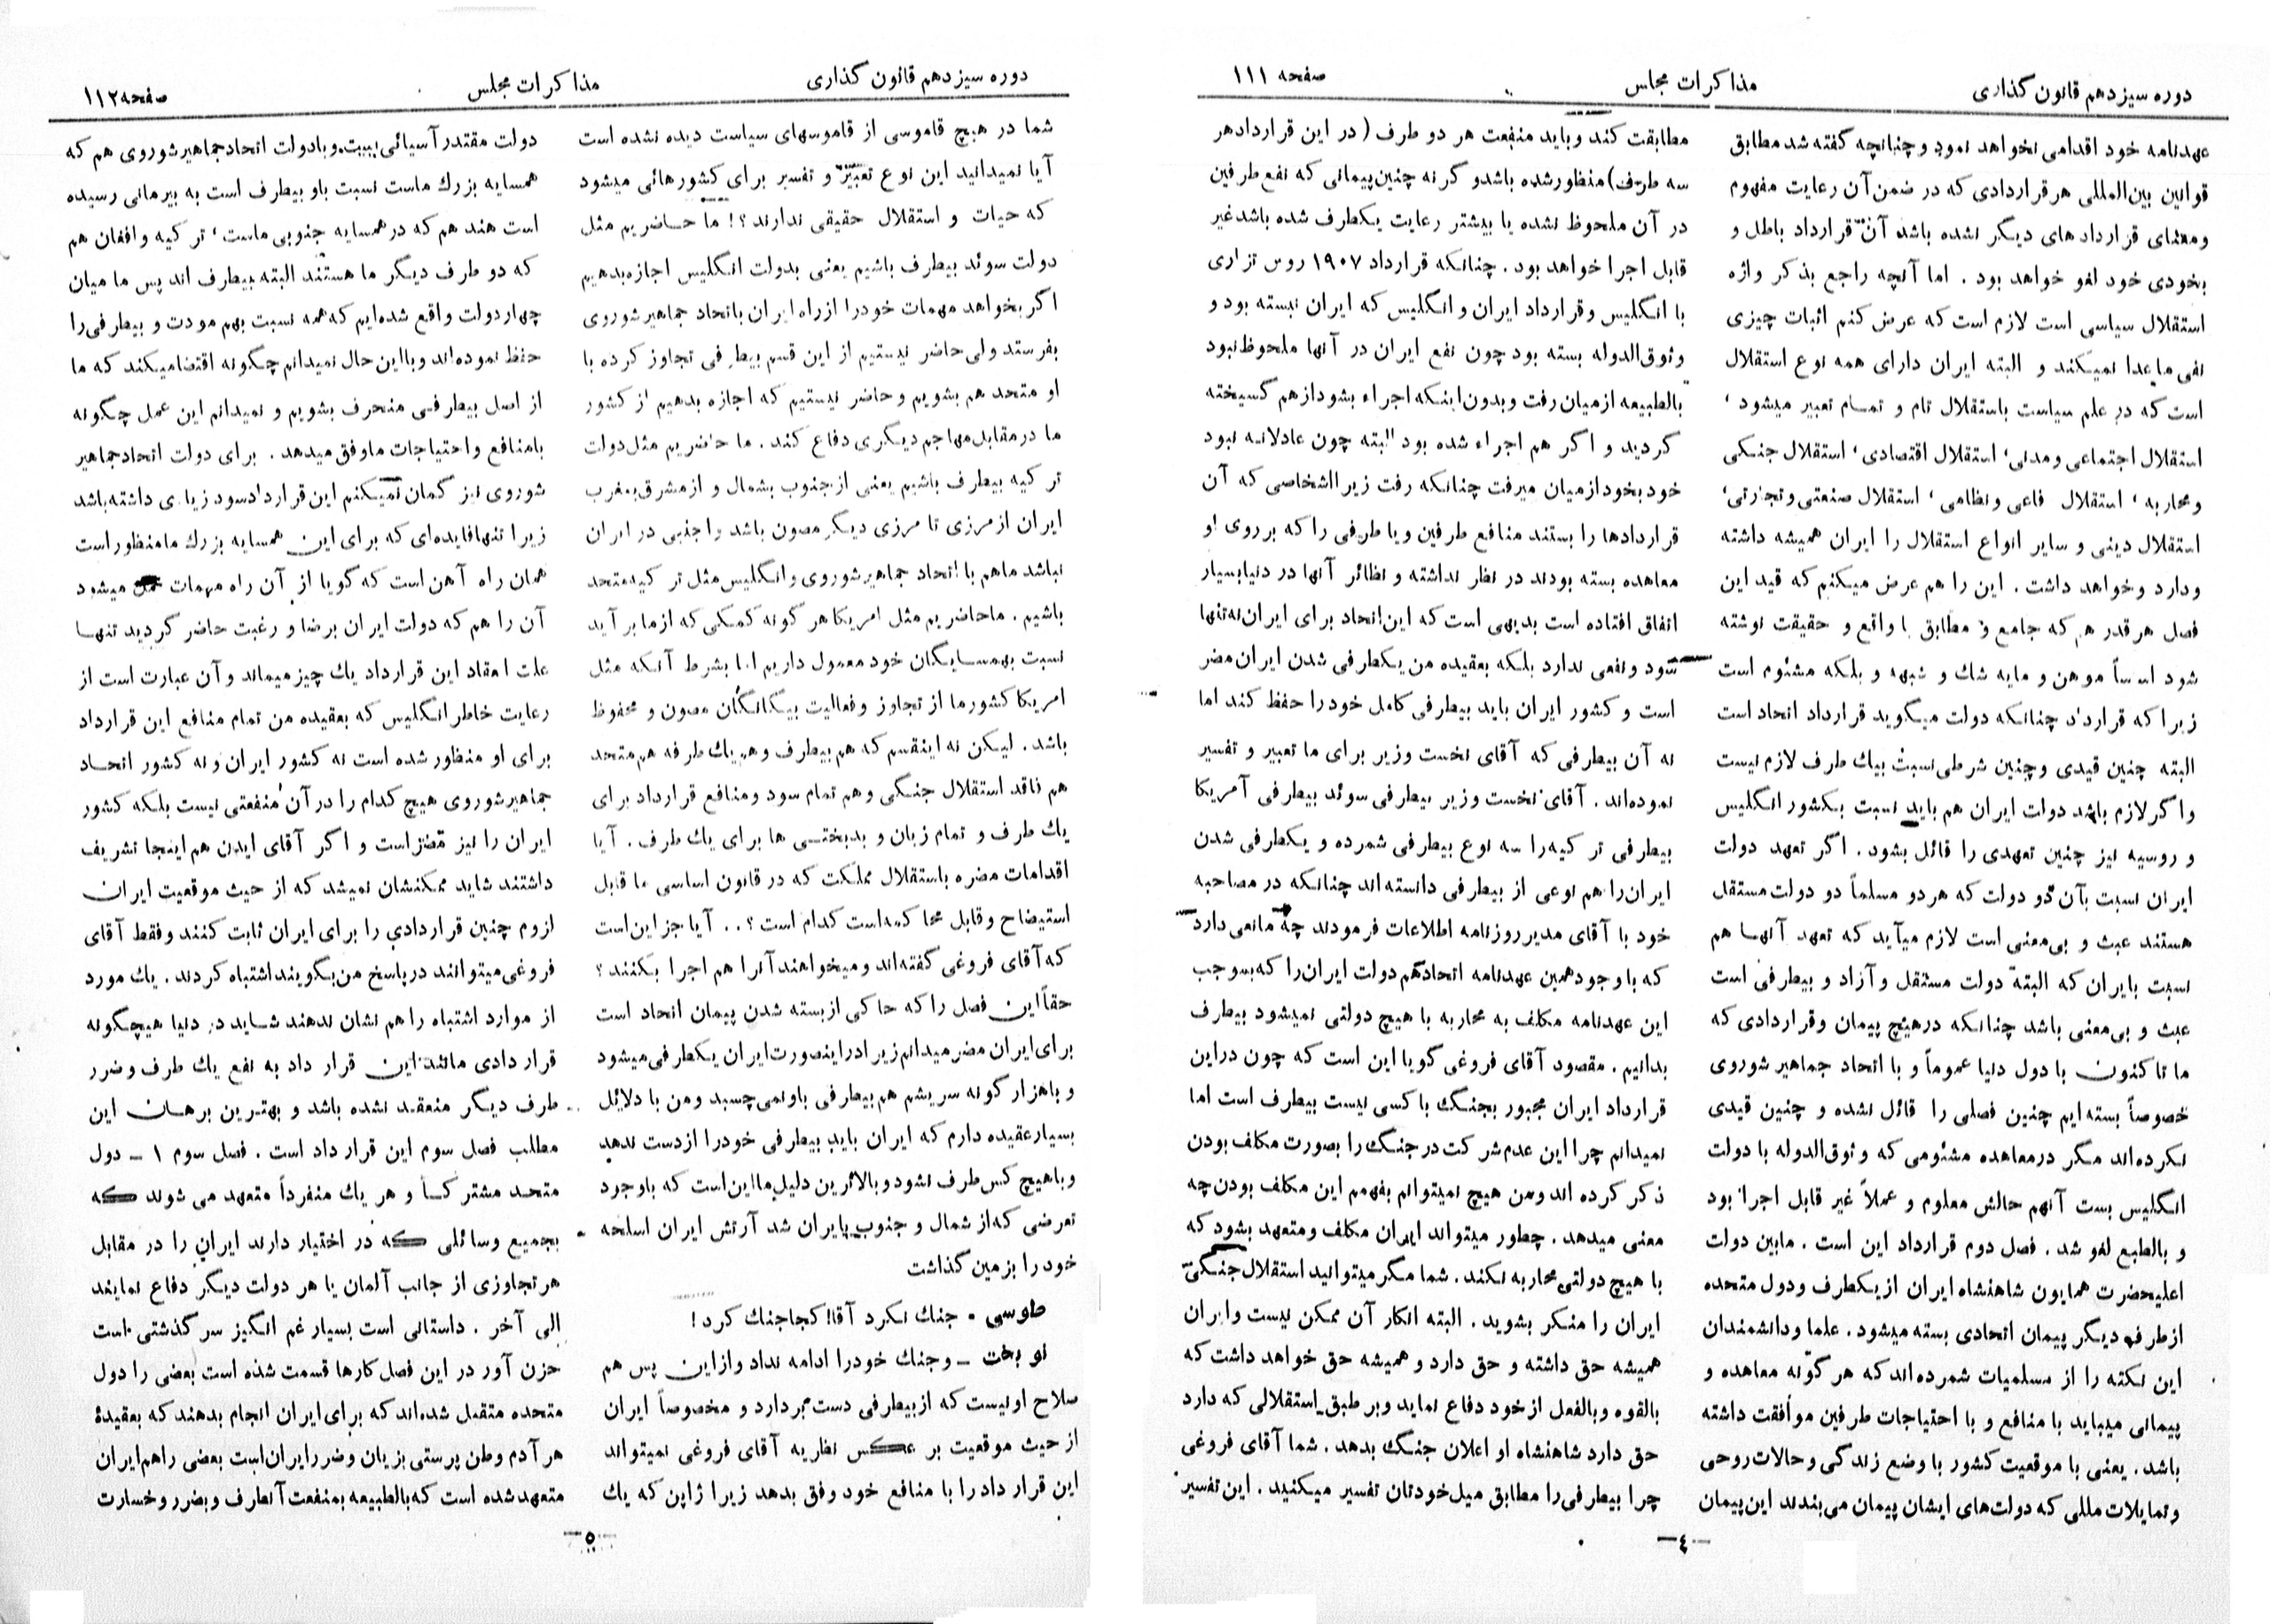 دوره سیزدهم قانون گذاری
مذاکرات مجلس
صفحه ۱۱۱
عهدنامه خود اقدامی نخواهد نمود و چنانچه گفته شد مطابق
قوانین بین‌المللی هر قراردادی که در ضمن آن رعایت مفهوم
ومعنای قراردادهای دیگر نشده باشد آن قرارداد باطل و
بخودی خود لغو خواهد بود . اما آنچه راجع بذکر واژه
استقلال سیاسی است لازم است که عرض کنم اثبات چیزی
نفی ماعدا نمیکند و البته ایران دارای همه نوع استقلال
است که در علم سیاست باستقلال تام و تمام تعبیر میشود ،
استقلال اجتماعی ومدنی، استقلال اقتصادی، استقلال جنگی
ومحاربه ، استقلال فاعی ونظامی ، استقلال صنعتی وتجارتی،
استقلال دینی و سایر انواع استقلال را ایران همیشه داشته
ودارد وخواهد داشت . این را هم عرض میکنم که قید این
فصل هر قدر هم که جامع و مطابق با واقع و حقیقت نوشته
شود اساساً موهن و مایه شك و شبهه و بلکه مشئوم است
زیرا که قرارداد چنانکه دولت میگوید قرارداد اتحاد است
البته چنین قیدی وچنین شرطی نسبت بیك طرف لازم نیست
واگر لازم باشد دولت ایران هم باید نسبت بکشور انگلیس
و روسیه نیز چنین تعهدی را قائل بشود . اگر تعهد دولت
ایران نسبت بآن دو دولت که هر دو مسلماً دو دولت مستقل
هستند عبث و بی‌معنی است لازم میآید که تعهد آنها هم
نسبت بایران که البته دولت مستقل و آزاد و بیطرفی است
عبث و بی‌معنی باشد چنانکه درهیچ پیمان وقراردادی که
ما تا کنون با دول دنیا عموماً و با اتحاد جماهیر شوروی
خصوصاً بسته‌ایم چنین فصلی را قائل نشده و چنین قیدی
نکرده‌اند مگر در معاهده مشئومی که وثوق‌الدوله با دولت
انگلیس بست آنهم حالش معلوم و عملاً غیر قابل اجرا بود
و بالطبع لغو شد . فصل دوم قرارداد این است . مابین دولت
اعلیحضرت همایون شاهنشاه ایران از یکطرف ودول متحده
از طرف دیگر پیمان اتحادی بسته میشود . علما ودانشمندان
این نکته را از مسلمیات شمرده‌اند که هر گونه معاهده و
پیمانی میباید با منافع و با احتیاجات طرفین موافقت داشته
باشد . یعنی با موقعیت کشور با وضع زندگی و حالات روحی
و تمایلات مللی که دولت‌های ایشان پیمان می‌بندند این پیمان
مطابقت کند وباید منفعت هر دو طرف ( در این قراردادهر
سه طرف) منظور شده باشد و گرنه چنین پیمانی که نفع طرفین
در آن ملحوظ نشده یا بیشتر رعایت یکطرف شده باشد غیر
قابل اجرا خواهد بود . چنانکه قرارداد ۱۹۰۷ روس تزاری
با انگلیس وقرارداد ایران وانگلیس که ایران نبسته بود و
وثوق‌الدوله بسته بود چون نفع ایران در آنها ملحوظ نبود
بالطبیعه ازمیان رفت وبدون اینکه اجراء بشود از هم گسیخته
گردید و اگر هم اجراء شده بود البته چون عادلانه نبود
خود بخود ازمیان میرفت چنانکه رفت زیرا اشخاصی که آن
قراردادها را بستند منافع طرفین ویا طرفی را که برروی او
معاهده بسته بودند در نظر نداشته و نظائر آنها در دنیا بسیار
اتفاق افتاده است بدیهی است که این اتحاد برای ایران نه تنها
سود ونفعی ندارد بلکه بعقیده من یکطرفی شدن ایران مضر
است و کشور ایران باید بیطرفی کامل خود را حفظ کند اما
نه آن بیطرفی که آقای نخست وزیر برای ما تعبیر و تفسیر
نموده‌اند . آقای نخست وزیر بیطرفی سوئد بیطرفی آمریکا
بیطرفی ترکیه را سه نوع بیطرفی شمرده و یکطرفی شدن
ایران‌را هم نوعی از بیطرفی دانسته‌اند چنانکه در مصاحبه
خود با آقای مدیر روزنامه اطلاعات فرمودند چه مانعی دارد
که با وجود همین عهدنامه اتحاد هم دولت ایران‌را که بموجب
این عهدنامه مکلف به محاربه با هیچ دولتی نمیشود بیطرف
بدانیم . مقصود آقای فروغی گویا این است که چون دراین
قرارداد ایران مجبور بجنگ با کسی نیست بیطرف است اما
نمیدانم چرا این عدم شرکت در جنگ را بصورت مکلف بودن
ذکر کرده اند ومن هیچ نمیتوانم بفهمم این مکلف بودن چه
معنی میدهد . چطور میتواند ایران مکلف ومتعهد بشود که
با هیچ دولتی محاربه نکند . شما مگر میتوانید استقلال جنگی
ایران را منکر بشوید . البته انکار آن ممکن نیست وایران
همیشه حق داشته و حق دارد و همیشه حق خواهد داشت که
بالقوه وبالفعل از خود دفاع نماید وبر طبق استقلالی که دارد
حق دارد شاهنشاه او اعلان جنگ بدهد . شما آقای فروغی
چرا بیطرفی‌را مطابق میل خودتان تفسیر میکنید . این تفسیر
-٤-
دوره سیزدهم قانون گذاری
مذاکرات مجلس
صفحه ۱۱۲
شما در هیچ قاموسی از قاموسهای سیاست دیده نشده است
آیا نمیدانید این نوع تعبیر و تفسیر برای کشورهائی میشود
که حیات و استقلال حقیقی ندارند ؟! ما حاضریم مثل
دولت سوئد بیطرف باشیم یعنی بدولت انگلیس اجازه بدهیم
اگر بخواهد مهمات خودرا ازراه ایران باتحاد جماهیر شوروی
بفرستد ولی حاضر نیستیم از این قسم بیطرفی تجاوز کرده با
او متحد هم بشویم و حاضر نیستیم که اجازه بدهیم از کشور
ما درمقابل مهاجم دیگری دفاع کند . ما حاضریم مثل دولت
ترکیه بیطرف باشیم یعنی از جنوب بشمال و از مشرق بمغرب
ایران از مرزی تا مرزی دیگر مصون باشد واجنبی در ایران
نباشد ماهم با اتحاد جماهیر شوروی وانگلیس مثل ترکیه متحد
باشیم . ماحاضریم مثل امریکا هر گونه کمکی که ازما برآید
نسبت بهمسایگان خود معمول داریم اما بشرط آنکه مثل
امریکا کشورما از تجاوز و فعالیت بیگانگان مصون و محفوظ
باشد . لیکن نه اینقسم که هم بیطرف وهم یك طرفه هم متحد
هم فاقد استقلال جنگی وهم تمام سود ومنافع قرارداد برای
یك طرف و تمام زیان و بدبختی ها برای یك طرف . آیا
اقدامات مضره باستقلال مملکت که در قانون اساسی ما قابل
استیضاح وقابل محاکمه‌است کدام است ؟ . . آیا جز این‌است
که آقای فروغی گفته‌اند ومیخواهند آنرا هم اجرا بکنند ؟
حقاً این فصل را که حاکی از بسته شدن پیمان اتحاد است
برای ایران مضر میدانم زیرا دراینصورت ایران یکطرفی میشود
و باهزار گونه سریشم هم بیطرفی باو نمی‌چسبد ومن با دلائل
بسیار عقیده دارم که ایران باید بیطرفی خودرا ازدست ندهد
و باهیچ کس طرف نشود و بالاترین دلیل ما این‌است که باوجود
تعرضی که از شمال و جنوب بایران شد آرتش ایران اسلحه
خود را بزمین گذاشت
طوسی - جنك نکرد آقا! کجا جنك کرد !
نوبخت - وجنك خودرا ادامه نداد وازاین پس هم
صلاح اونیست که از بیطرفی دست بردارد و مخصوصاً ایران
از حیث موقعیت بر عکس نظریه آقای فروغی نمیتواند
این قرار داد را با منافع خود وفق بدهد زیرا ژاپن که یك
دولت مقتدر آسیائی است و با دولت اتحاد جماهیر شوروی هم که
همسایه بزرك ماست نسبت باو بیطرف است به بیرمانی رسیده
است هند هم که در همسایه جنوبی ماست ، ترکیه وافغان هم
که دو طرف دیگر ما هستند البته بیطرف اند پس ما میان
چهار دولت واقع شده‌ایم که همه نسبت بهم مودت و بیطرفی را
حفظ نموده‌اند وبا این حال نمیدانم چگونه اقتضا میکند که ما
از اصل بیطرفی منحرف بشویم و نمیدانم این عمل چگونه
بامنافع و احتیاجات ماوفق میدهد . برای دولت اتحاد جماهیر
شوروی نیز گمان نمیکنم این قرارداد سود زیادی داشته باشد
زیرا تنها فایده‌ای که برای این همسایه بزرك ما منظور است
همان راه آهن است که گویا از آن راه مهمات میشود
آن را هم که دولت ایران برضا و رغبت حاضر گردید تنها
علت انعقاد این قرارداد یك چیز میماند و آن عبارت است از
رعایت خاطر انگلیس که بعقیده من تمام منافع این قرارداد
برای او منظور شده است نه کشور ایران و نه کشور اتحاد
جماهیر شوروی هیچ کدام را در آن منفعتی نیست بلکه کشور
ایران را نیز مضر است و اگر آقای ایدن هم اینجا تشریف
داشتند شاید ممکنشان نمیشد که از حیث موقعیت ایران
لزوم چنین قراردادی را برای ایران ثابت کنند وفقط آقای
فروغی میتوانند در پاسخ من بگویند اشتباه کردند . یك مورد
از موارد اشتباه را هم نشان ندهند شاید در دنیا هیچگونه
قرار دادی مانند این قرار داد به نفع یك طرف و ضرر
طرف دیگر منعقد نشده باشد و بهترین برهان این
مطلب فصل سوم این قرار داد است . فصل سوم ۱ - دول
متحد مشترکاً و هر یك منفرداً متعهد می شوند که
بجمیع وسائلی که در اختیار دارند ایران را در مقابل
هر تجاوزی از جانب آلمان یا هر دولت دیگر دفاع نمایند
الی آخر . داستانی است بسیار غم انگیز سر گذشتی است
حزن آور در این فصل کارها قسمت شده است بعضی را دول
متحده متقبل شده‌اند که برای ایران انجام بدهند که بعقیدهٔ
هر آدم وطن پرستی بزیان وضرر ایران است بعضی را هم ایران
متعهد شده است که بالطبیعه بمنفعت آنطرف و بضرر و خسارت
-٥-